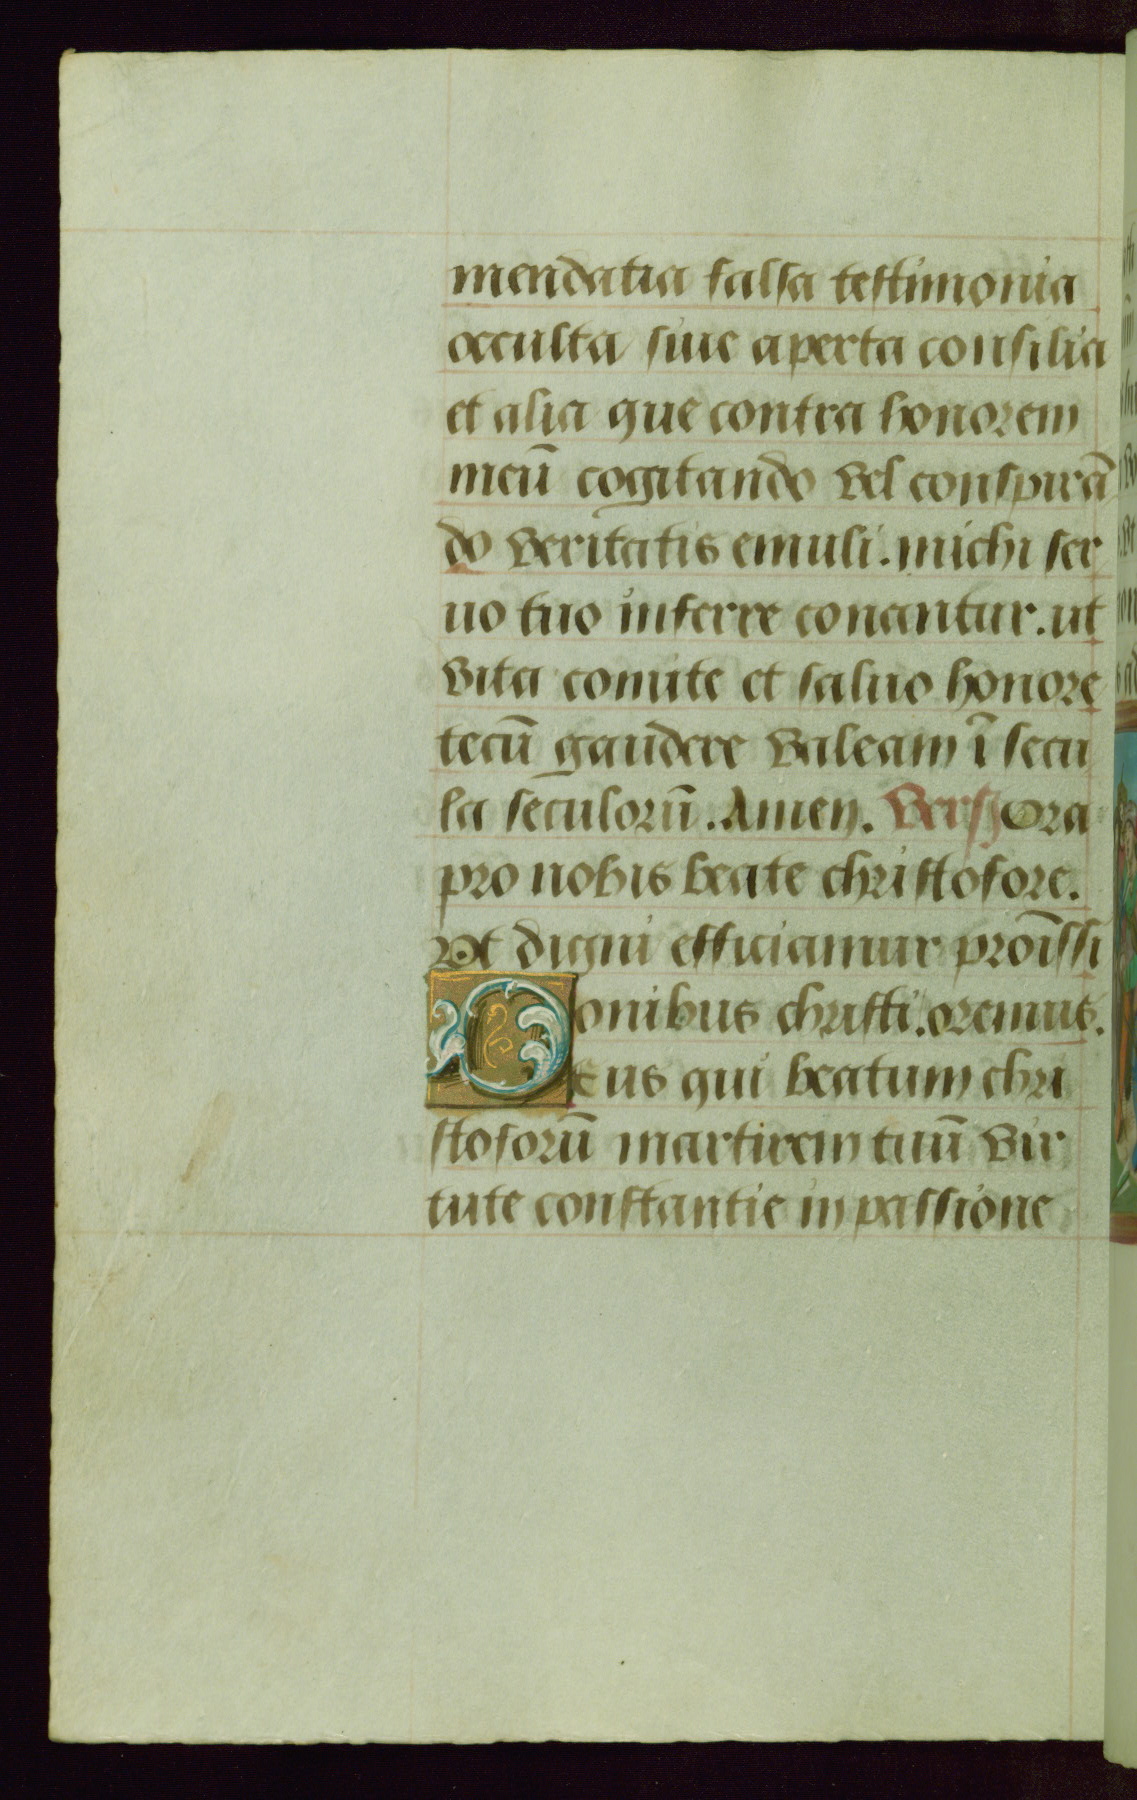 mendatia falsa testimonia
occulta siue aperta consilia
et alia que contra honorem
meū cogitando vel conspirā
do veritatis emuli. michi ser
uo tuo inferre conantur. ut
vita comite et saluo honore
tecū gaudere valeam ī secu
la seculorū. Amen. Vers Ora
pro nobis beate christofore.
Vt digni efficiamur proīssi
onibus christi. oremus.
Deus qui beatum chri
stoforū martirem tuū vir
tute constantie in passione